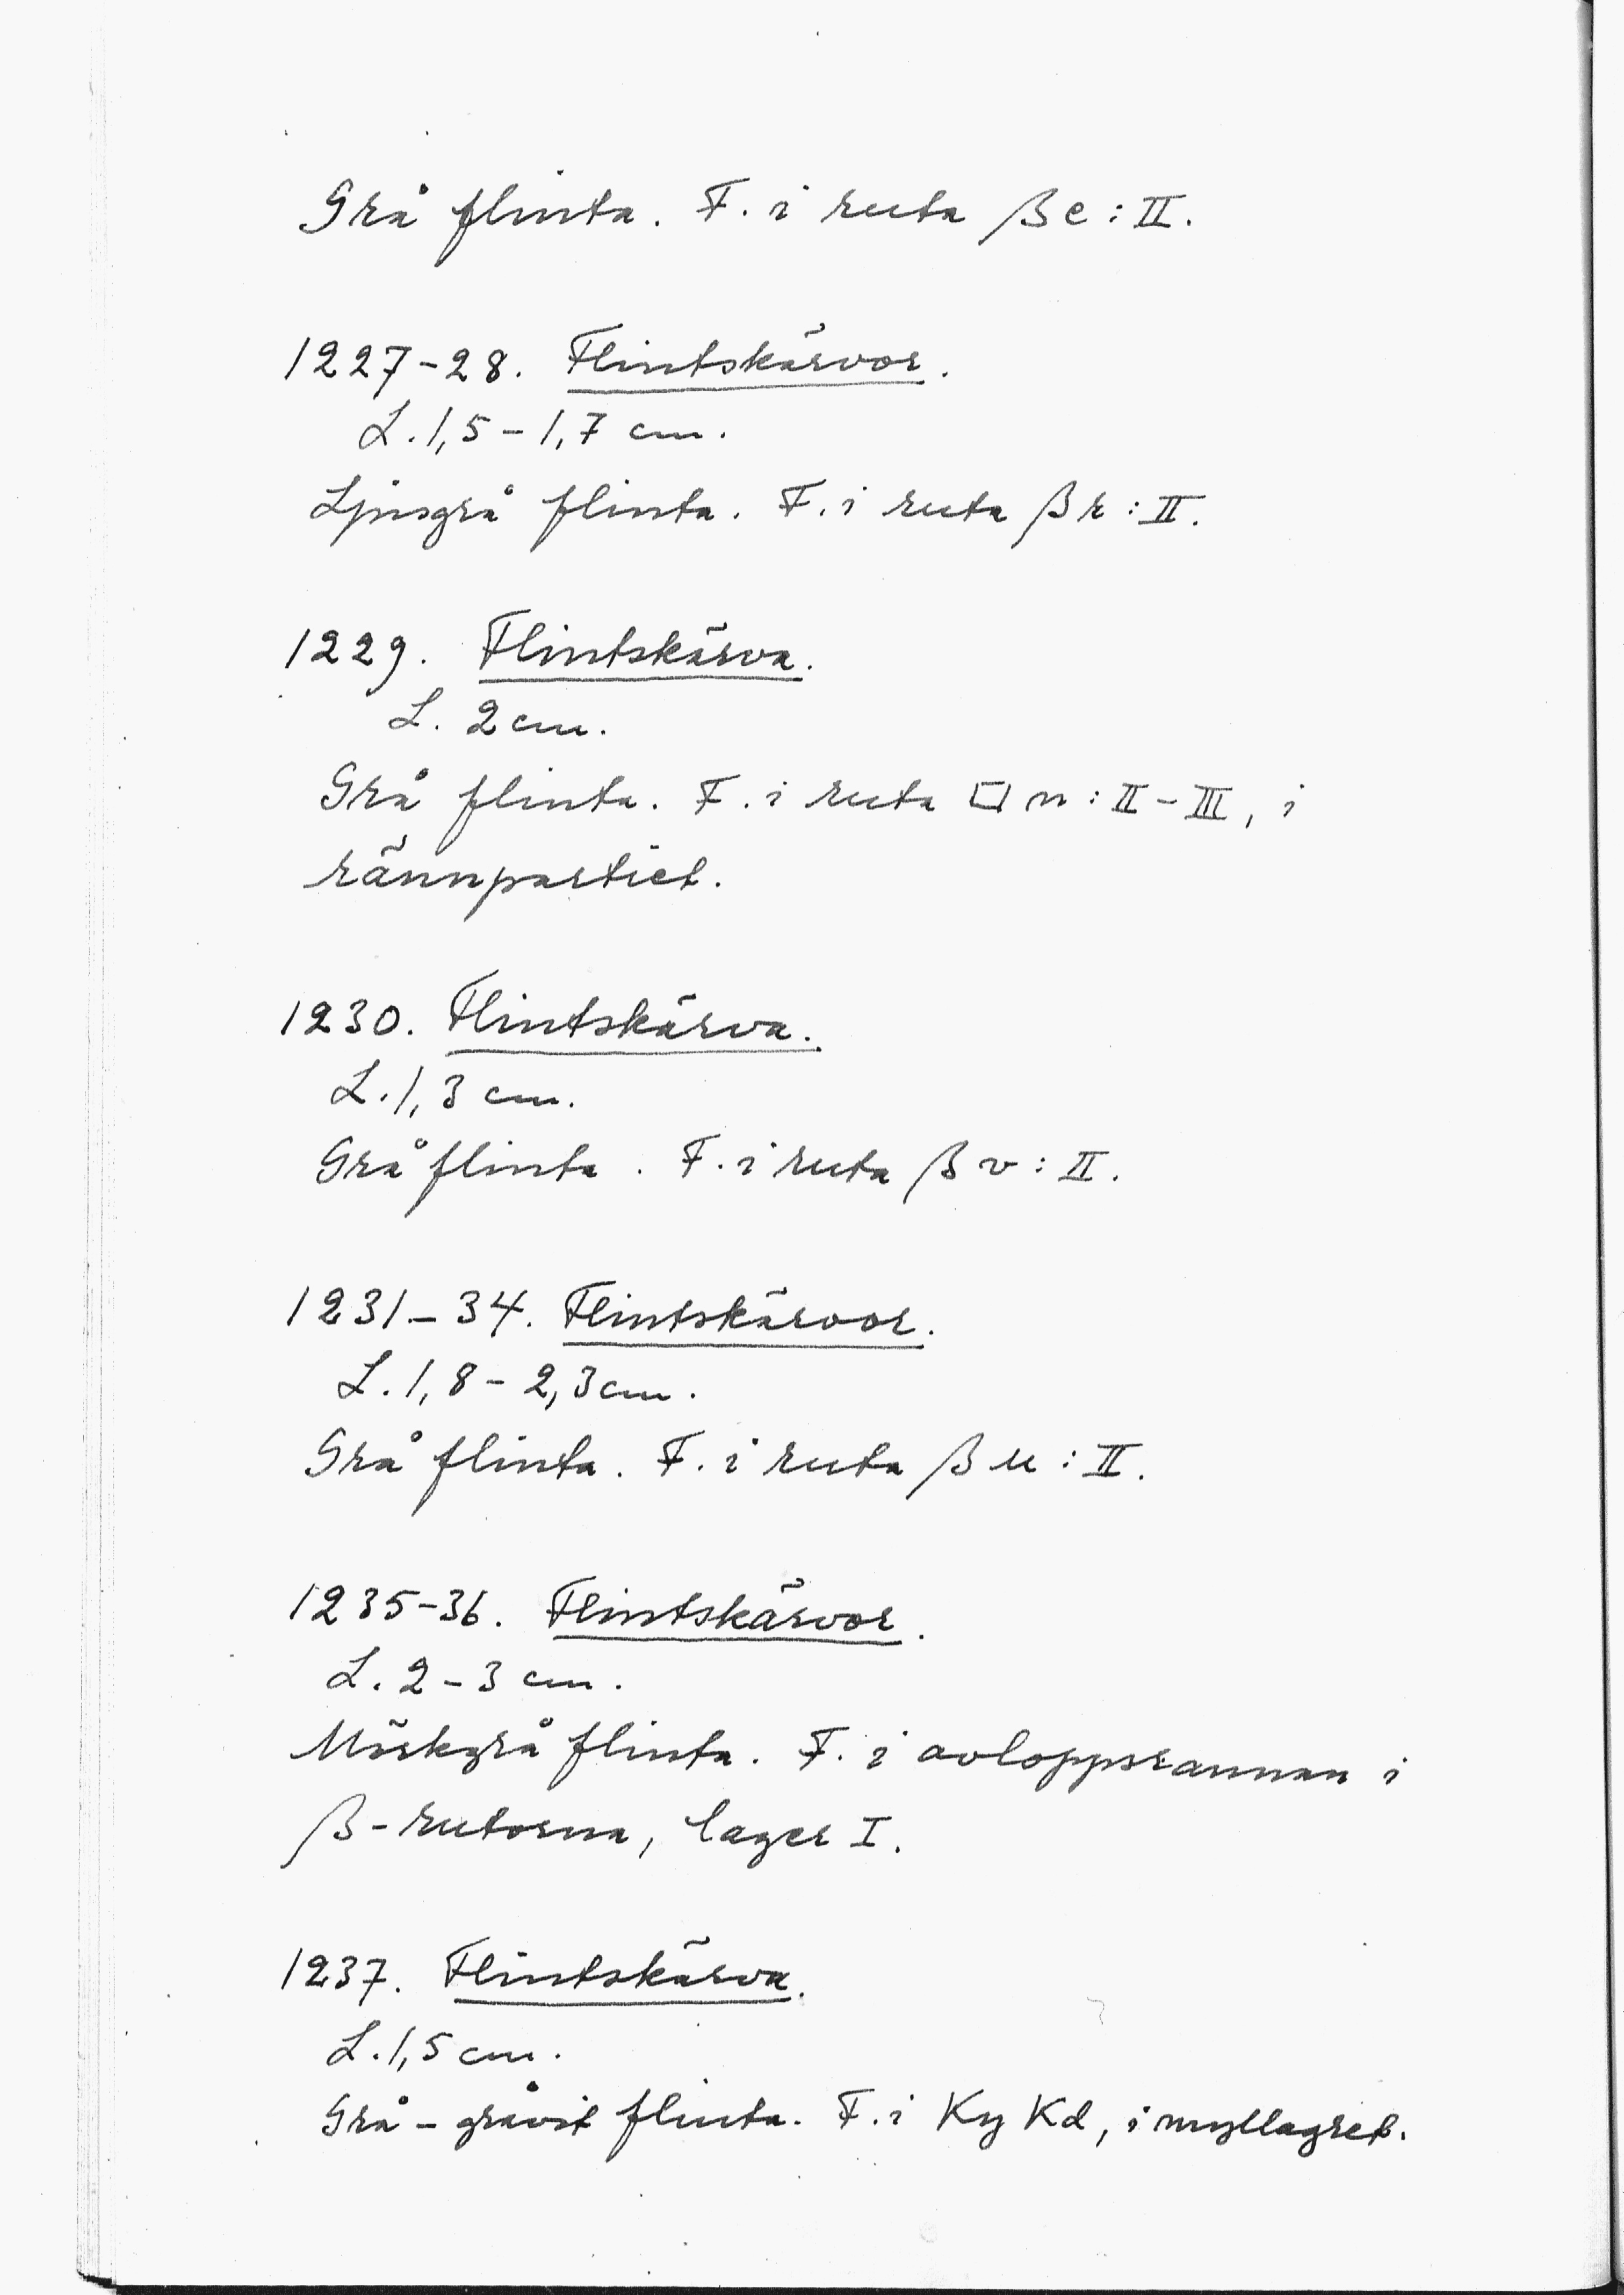 Grå flinta. F. i ruta β e : II.
1227-28. Flintskärvor.
L. 1,5 - 1,7 cm.
Ljusgrå flinta. F. i ruta β r : II.
1229. Flintskärva.
L. 2 cm.
Grå flinta. F. i ruta □ n : II - III, i
rännpartiet.
1230. Flintskärva.
L. 1,3 cm.
Grå flinta. F. i ruta β v : II.
1231-34. Flintskärvor.
L. 1,8 - 2,3 cm.
Grå flinta. F. i ruta β u : II.
1235-36. Flintskärvor.
L. 2 - 3 cm.
Mörkgrå flinta. F. i avloppsrannan i
β-rutorna, lager I.
1237. Flintskärva.
L. 1,5 cm.
Grå - gråvit flinta. F. i Ky Kd, i myllagret.